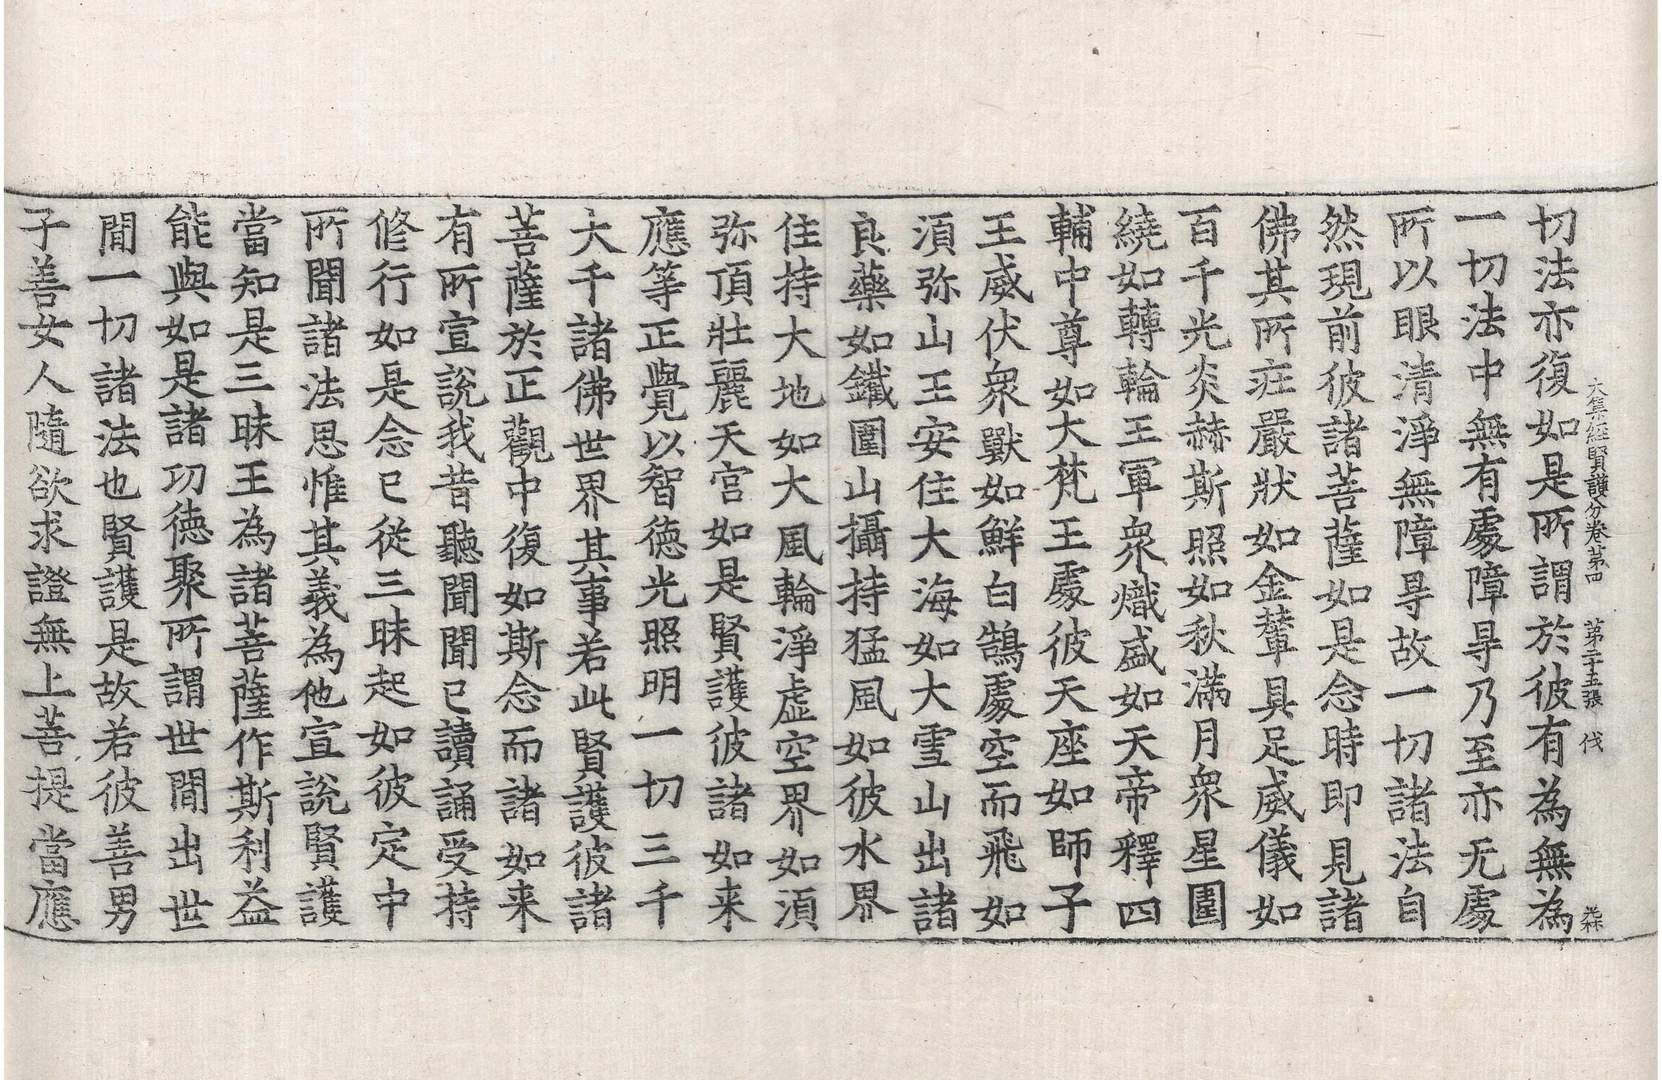 大集經賢護分卷第四 第二十五張 伐
切法亦復如是所謂於彼有為無為
一切法中無有處障㝵乃至亦无處
所以眼清淨無障㝵故一切諸法自
然現前彼諸菩薩如是念時即見諸
佛其所疰嚴狀如金輦具足威儀如
百千光炎赫斯照如秋滿月衆星圍
繞如轉輪王軍衆熾盛如天帝釋四
輔中尊如大梵王處彼天座如師子
王威伏衆獸如鮮白鵠處空而飛如
須弥山王安住大海如大雪山出諸
良藥如鐵圍山攝持猛風如彼水界
住持大地如大風輪淨虛空界如須
弥頂壯麗天宮如是賢護彼諸如来
應等正覺以智德光照明一切三千
大千諸佛世界其事若此賢護彼諸
菩薩於正觀中復如斯念而諸如来
有所宣說我昔聽聞聞已讀誦受持
修行如是念已從三昧起如彼定中
所聞諸法思惟其義為他宣說賢護
當知是三昧王為諸菩薩作斯利益
能與如是諸功德聚所謂世間出世
間一切諸法也賢護是故若彼善男
子善女人隨欲求證無上菩提當應